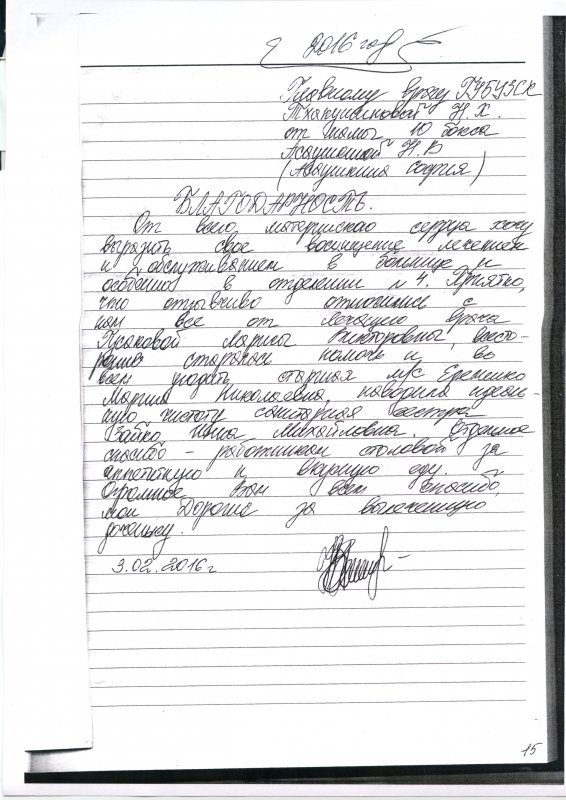 2016 год
Главному врачу ГУБУЗСК
Тхакушиновой Н.Х.
от мамы 10 бокса
Н.В
София)
БЛАГОДАРНОСТЬ.
От всего материнского сердца хочу
выразить своё восхищение лечением
и обслуживанием в больнице и
особенно в отделении №4. Приятно,
что отзывчиво относились к
нам все от лечащего врача
Марины Викторовны, всесто-
ронне старалась помочь и во
всем угодить старшая м/с Еременко
Мария Николаевна, наводила идеаль-
ную чистоту санитарная сестра
Зайко Михайловна. Отдельное
спасибо - работникам столовой за
аппетитную и вкусную еду.
Огромное Вам всем спасибо,
мои Дорогие за вылеченную
доченьку.
3.02.2016 г
15